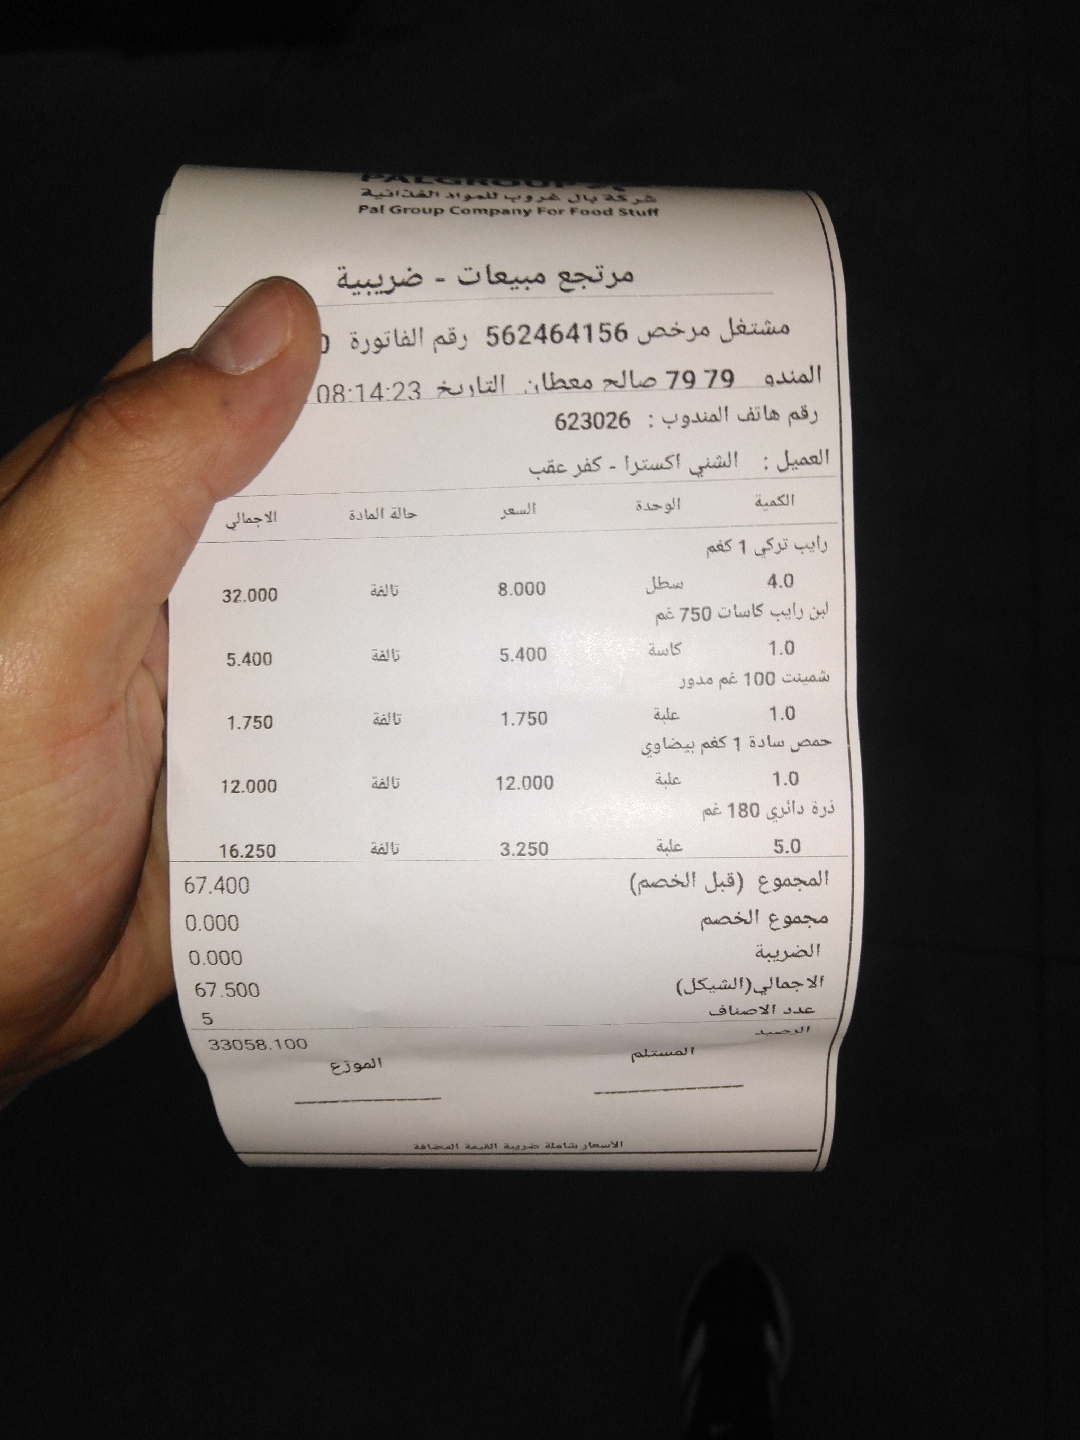 PALGROUP
شركة بال غروب للمواد الغذائية
Pal Group Company For Food Stuff
مرتجع مبيعات - ضريبية
مشتغل مرخص 562464156 رقم الفاتورة
المندو 79 79 صالح معطان التاريخ 08:14:23
رقم هاتف المندوب : 623026
العميل : الشني اكسترا - كفر عقب
الكمية الوحدة السعر حالة المادة الاجمالي
رايب تركي 1 كغم
4.0 سطل 8.000 تالفة 32.000
لبن رايب كاسات 750 غم
1.0 كاسة 5.400 تالفة 5.400
شمينت 100 غم مدور
1.0 علبة 1.750 تالفة 1.750
حمص سادة 1 كغم بيضاوي
1.0 علبة 12.000 تالفة 12.000
ذرة دائري 180 غم
5.0 علبة 3.250 تالفة 16.250
المجموع (قبل الخصم) 67.400
مجموع الخصم 0.000
الضريبة 0.000
الاجمالي(الشيكل) 67.500
عدد الاصناف 5
الرصيد 33058.100
المستلم الموزع
الأسعار شاملة ضريبة القيمة المضافة